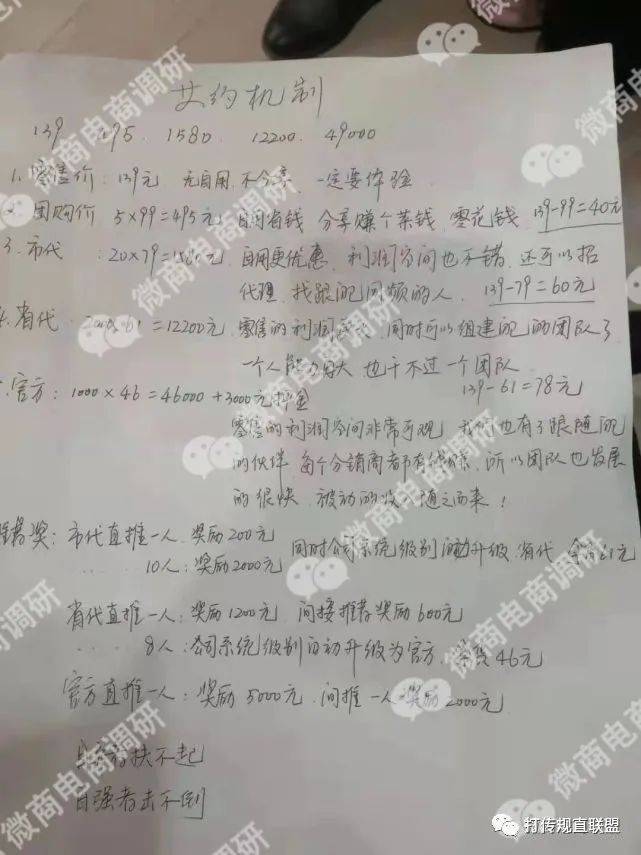 艾约机制
139 495. 1580. 12200. 49000
1. 零售价: 139元 先自用, 不分享, 一定要体验
2. 团购价 5×99=495元 自用省钱 分享赚个菜钱, 零花钱 139-99=40元
3. 市代 : 20×79=1580元. 自用更优惠, 利润空间也不错. 还可以招
代理. 找跟配同频的人. 139-79=60元
4. 省代 : 61=12200元. 零售的利润 同时可以组建配的团队了
一个人能力再大 也干不过一个团队
139-61=78元
官方: 1000×46=46000+3000元押金
零售的利润空间非常可观 我们也有了跟随配
的伙伴 每个分销商者都有钱赚, 所以团队也发展
的很快. 被动的收入随之而来!
推荐奖: 市代直推一人. 奖励200元
10人: 奖励2000元 同时公司系统级别自动升级 省代 61元
省代直推一人: 奖励1200元 间接推荐奖励600元
8人: 公司系统级别自动升级为官方, 拿货46元
官方直推一人: 奖励5000元. 间推一人 奖励2000元
扶不起
自强者击不倒
微商电商调研
打传规直联盟